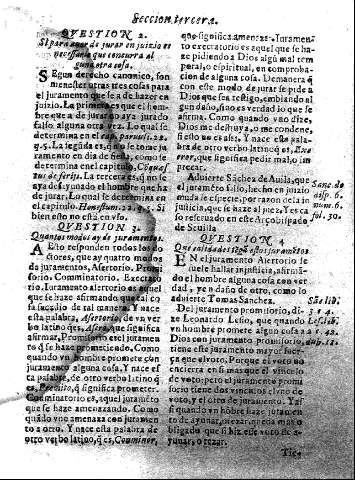 Seccion tercera.
QVESTION 2.
Si para auer de jurar en juizio es
necessario que concurra al
guna otra cosa.
SEgun derecho canonico, son
menester tres cosas para
el juramento que se a de hazer en
juizio. La primera es que el hom-
bre que a de juro no aya jurado
falso alguna otra vez. Lo qual se
determina en el cap. 22.
q. 5. La segūda es, q̄ no se tome ju-
ramento en dia de fiesta, como se
determina en el capitulo. Cōquæ
stus de ferijs. La tercera es, q̄ no se
aya desayunado el hombre que ha
de jurar. Lo qual se determina en
el capitulo. Honestum. 22. q. 5. Si
bien esto no está en vso.
QVESTION 3.
Quantos modos ay de juramentos.
A Esto responden todos los do
ctores, que ay quatro modos
de juramentos, Asertorio. Promi-
sorio. Cominatorio. Execrato-
rio. Iuramento asertorio es aquel
que se haze afirmando que tal co
sa sucedio de tal manera. Y nace
esta palabra, Asertorio, de vn ver
bo latino qes, Asero, que significa
afirmar, Promisorio es el juramen
to que se haze prometiendo. Como
quando vn hombre promete con
juramento alguna cosa. Y nace es
ta palabra, de otro verbo latino q̄
es, Promito, q̄ significa prometer.
Cominatorio es, aquel juramēto
que se haze amenazando. Como
quādo vno amenaza con juramen
to a otro. Y nace esta palabra de
otro verbo latino, q̄ es, Cominor,
que significa amenazar. Iuramen-
to execratorio es aquel que se ha-
ze pidiendo a Dios algū mal tem
poral, o espiritual, en comproba-
cion de alguna cosa. Demanera q̄
con este modo de jurar se pide a
Dios que sea testigo, embiando al
gun daño, sino es verdad lo que se
afirma. Como quando vno dize,
Dios me destruya, o me condene,
si esto no es assi. Y nace esta pala
bra de otro verbo latino q̄ es, Exe
cror, que significa pedir mal, o im
precar.
Aduierte Sāchez de Auila, que
el juramēto falso, hecho en juizio
muda de especie, por razon de la in
justicia, que se haze al juez. Y es ca
so reseruado en este Arçobispado
de Seuilla
Sanc. de
disp. 6.
num. 6.
fol. 30.
QVESTION 4
Que calidad tēgan estos juramētos.
EN el juramento Asertorio se
suele hallar injusticia, afirmā-
do el hombre alguna cosa con ver
dad, y en daño de otro, como lo
aduierte Tomas Sanchez.
Del juramento promisorio, di-
ze Leonardo Lesio, que quando
vn hombre promete alguna cosa a
Dios con juramento promisorio,
tiene este juramento mayor fuer-
ça que el voto. Porque el voto no
encierra en si mas que el vinculo
de voto; pero el juramento promi
sorio tiene los vinculos el vno de
voto, y el otro de juramento. Y assi
quando vn hōbre haze juramen-
to de ayunar, o rezar, queda mas o
bligado que si hiziesse voto de a-
yunar, o rezar.
Sāc. lib.
3 1 4.
Les. lib.
2. 42.
dup. 12.
Tie-